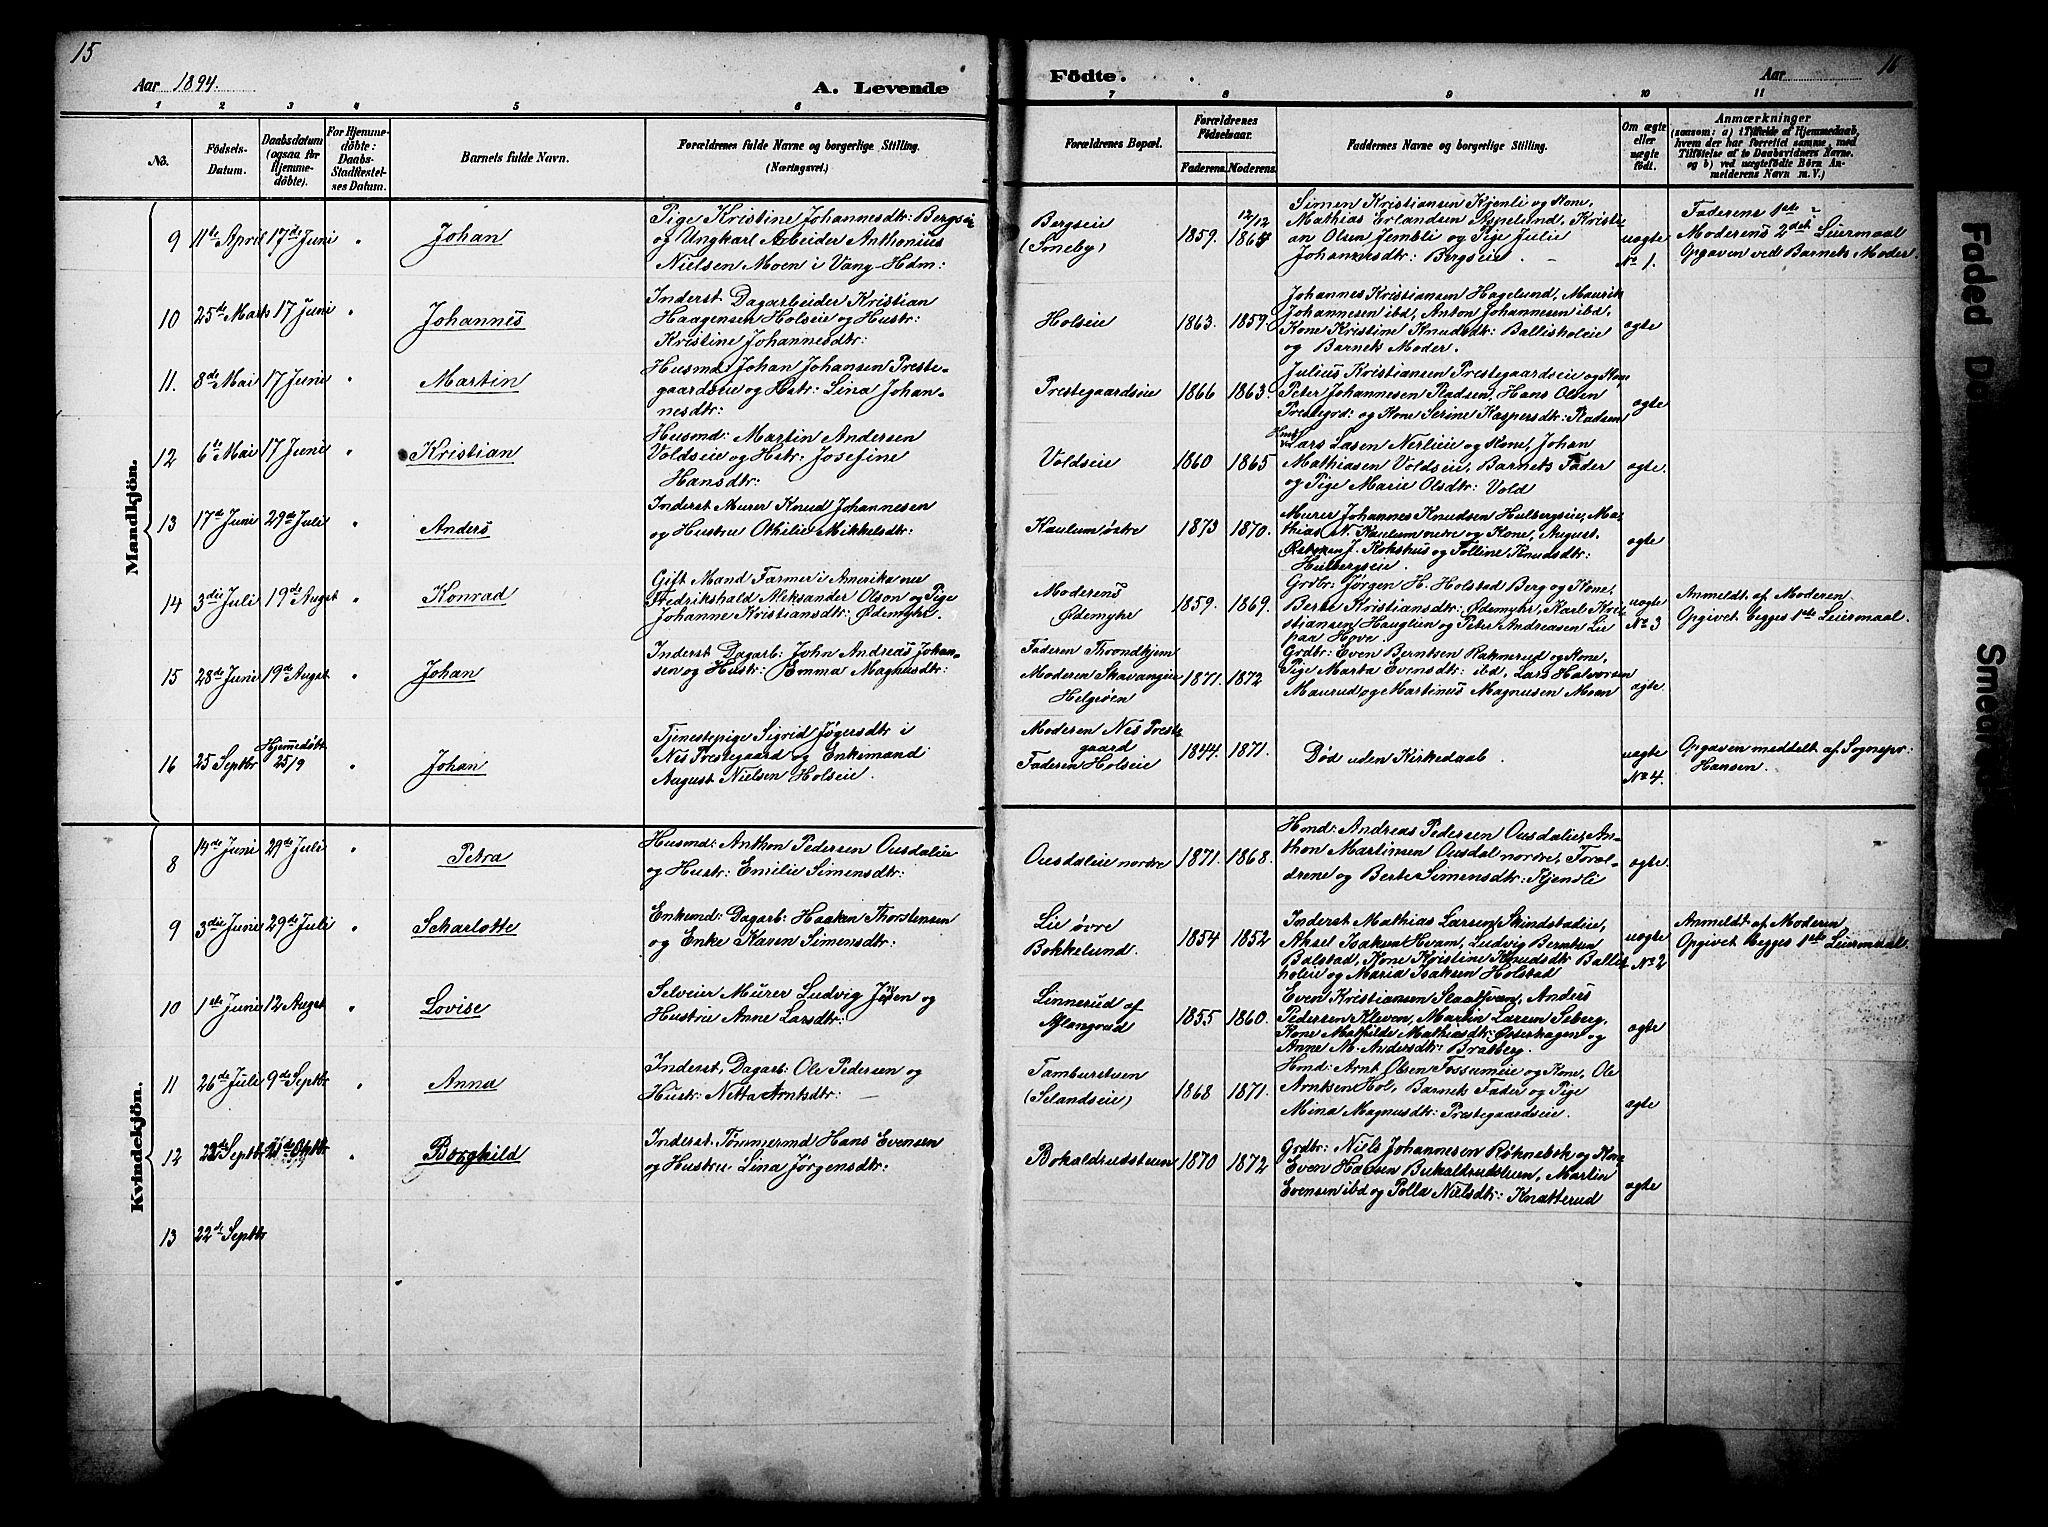 15
16
Aar 1894.
A. Levende
Födte.
Aar
1 2 3 4 5 6 7 8 9 10 11
No.
Födsels-
Datum.
Daabsdatum
(ogsaa for
Hjemme-
döbte).
For Hjemme-
döbte:
Daabs-
Stadfæstel-
ses Datum.
Barnets fulde Navn.
Forældrenes fulde Navne og borgerlige Stilling.
(Næringsvei.)
Forældrenes Bopæl.
Forældrenes
Födselsaar.
Faderens. Moderens.
Faddernes Navne og borgerlige Stilling.
Om ægte
eller
uægte
födt.
Anmærkninger
(saasom: a) i Tilfælde af Hjemmedaab,
hvem der har forrettet samme, med
Tilföielse af to Daabsvidners Navne.
og b) ved uægtefödte Börn An-
melderens Navn m. V.)
Mandkjön.
9 11te April 17de Juni " Johan
Pige Kristine Johannesdtr: Bergseie
og Ungkarl Arbeider Anthonius
Nielsen Moen i Vang Hdm:
Bergseie
(Smeby)
1859. 12/12 1865
Simen Kristiansen Kjenli og Kone,
Mathias Erlandsen Aspelund, Kristi-
an Olsen Jembli og Pige Julie
Johannesdtr: Bergseie.
uægte
No 1.
Faderens 1ste
Moderens 2det Leiermaal
Opgaven ved Barnets Moder
10 25de Marts 17 Juni " Johannes
Inderst Dagarbeider Kristian
Haagensen Holseie og Hustr:
Kristine Johannesdtr:
Holseie
1863. 1859.
Johannes Kristiansen Hagelund, Maurik
Johannesen ibd, Anton Johannesen ibd,
Kone Kristine Knudsdtr: Ballisholeie
og Barnets Moder.
ægte
11. 8de Mai 17 Juni " Martin
Husmd: Johan Johansen Preste-
gaardseie og Hstr: Lina Johan-
nesdtr:
Prestegaardseie
1866 1863.
Julius Kristiansen Prestegaardseie og Kone
Peter Johannesen Stadsen, Hans Olsen
Prestegrd: og Kone Serine Kaspersdtr: Stadsen
ægte
12 6te Mai 17 Juni " Kristian
Husmd: Martin Andersen
Voldseie og Hstr: Josefine
Hansdtr:
Voldseie
1860 1865
Lars Lasen Nerlieie og Kone, Johan
Mathiasen Voldseie, Barnets Fader
og Pige Marie Olsdtr: Vold
ægte.
13 17de Juni 29de Juli " Anders
Inderst Murer Knud Johannesen
og Hustru Othilie Mikkelsdtr:
Kaulum østre
1873 1870.
Murer Johannes Knudsen Hulbergseie, Ma-
thias N. Kaulum nedre og Kone, August
J. Kokshus og Tolline Knudsdtr:
Hulbergseie.
ægte
14 3die Juli 19de Augst " Konrad
Gift Mand Farmer i Amerika nu
Fredrikshald Aleksander Olson og Pige
Johanne Kristiansdtr: Ødemyhr.
Moderens
Ødemyhr
1859. 1869.
Grdbr: Jørgen H. Holstad Berg og Kone,
Berte Kristiansdtr: Ødemyhr, Karl Kri-
stiansen Hauglien og Peter Andreasen Lie
paa Hove.
uægte
No 3
Anmeldt af Moderen
Opgivet begges 1ste Leiermaal.
15 28de Juni 19de Augst " Johan
Inderst Dagarb: John Andreas Johan-
sen og Hustr: Emma Magnusdtr:
Faderen Throndhjem
Moderen Skavangeie
Helgeøen
1871. 1872
Grdbr: Even Berntsen Raknerud og Kone,
Pige Marta Evensdtr: ibd, Lars Halvorsen
Maurud og Martinus Magnusen Moen
ægte
16 25 Septbr Hjemmedøbt
25/9 " Johan
Tjenestepige Sigrid Jøgersdtr i
Nes Prestegaard og Enkemand
August Nielsen Holseie.
Moderen Nes Preste
gaard
Faderen Holseie
1844. 1871.
Død uden Kirkedaab.
uægte
No 4.
Opgaven meddelt af Sognepr:
Hansen.
Kvindekjön.
8 14de Juni 29de Juli " Petra
Husmd: Anthon Pedersen Ousdaleie
og Hustr: Emilie Simensdtr:
Ousdaleie nordre
1871. 1868.
Hmd: Andreas Pedersen Ousdaleie, An-
thon Martinsen Ousdal nordre, Foræl-
drene og Berte Simensdtr: Kjendli
ægte.
9 3die Juni 29de Juli " Scharlotte
Enkemd: Dagarb: Haaken Thorstensen
og Enke Karen Simensdtr:
Lie øvre
Bokkelund.
1854 1852
Inderst Mathias Larsen Skindstadeie,
Aksel Isaksen Hvam, Ludvig Berntsen
Balstad, Kone Kristine Knudsdtr Ballis-
holeie og Maria Isaksen Holstad
uægte
No 2
Anmeldt af Moderen
Opgivet begges 1ste Leiermaal.
10 1ste Juni 12 Augst " Lovise
Selveier Murer Ludvig Jensen og
Hustru Anne Larsdtr:
Linnerud af
Aflangrud
1855 1860.
Even Kristiansen Slaatsveen, Anders
Pedersen Kleven, Martin Larsen Seberg,
Kone Mathilde Mathiasdtr: Østerhagen og
Anne M. Andersdtr: Bratberg.
ægte
11 26de Juli 9de Septbr " Anna
Inderst, Dagarb: Ole Pedersen og
Hustr: Netta Arntsdtr:
Tamburstuen
(Selandseie)
1868 1871.
Hmd: Arnt Olsen Fossumeie og Kone, Ole
Arntsen Hol, Barnets Fader og Pige
Mina Magnusdtr: Prestegaardseie.
ægte
12 22de Septbr " Borghild
Inderst. Tømmermd Hans Evensen
og Hustru Lina Jørgensdtr:
Bokaldrudstuen
1870 1872
Grdbr: Niels Johannesen Røknebek og Kone
Even Hansen Bukaltrudstuen, Martin
Evensen ibd og Polla Nielsdtr: Knatterud
ægte
13 22de Septbr
Faded
Smeared